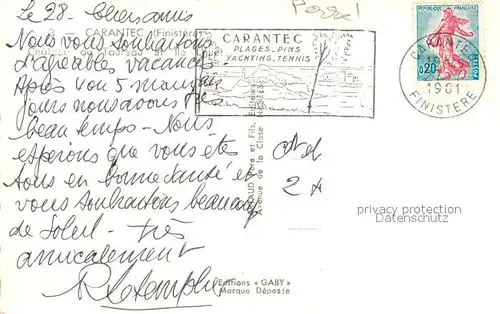 Le 28. Chers amis
Nous vous souhaitons
d'agréables vacances
Après 4 ou 5 mauvais
jours nous avons du
beau temps - Nous
espérons que vous êtes
tous en bonne santé et
vous souhaitons beaucoup
de Soleil - très
amicalement
CARANTEC (Finistère)
Château du Taureau et Ile Louet
CARANTEC
PLAGES.PINS
YACHTING.TENNIS
REPUBLIQUE FRANÇAISE
0,20
POSTES
CARANTEC
FINISTERE
Père et Fils, Editeurs
Avenue de la Close NANTES
privacy protection
Datenschutz
Editions « GABY »
Marque Déposée